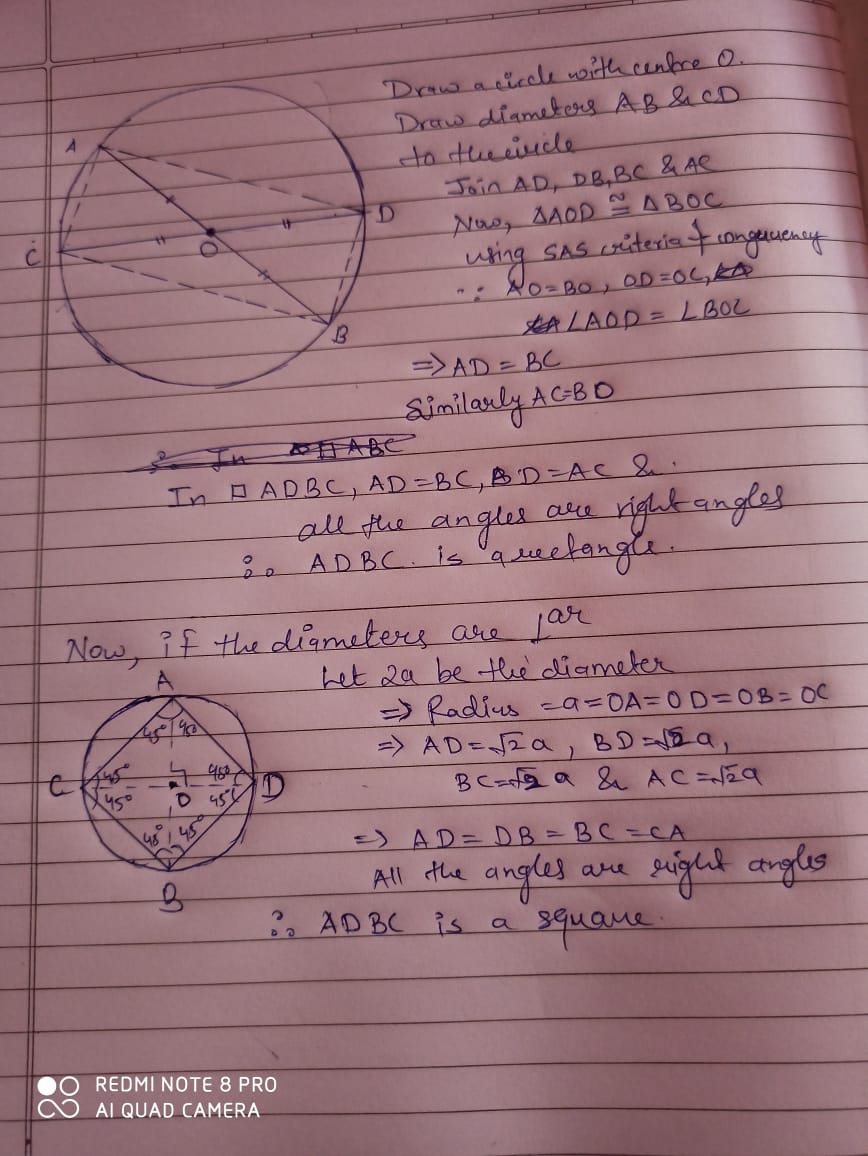 Draw a circle with centre O.
Draw diameters AB & CD
to the circle
Join AD, DB, BC & AC
Now, ΔAOD ≅ ΔBOC
using SAS criteria of congruency
∵ AO=BO, OD=OC,
∠AOD = ∠BOC
=> AD = BC
Similarly AC=BD
A
D
C
O
B
∴ In □ ABC
In □ ADBC, AD=BC, BD=AC &
all the angles are right angles
∴ ADBC is a rectangle.
Now, if the diameters are ⊥ar
Let 2a be the diameter
=> Radius =a=OA=OD=OB=OC
=> AD=√2a, BD=√2a,
BC=√2a & AC=√2a
=> AD = DB = BC = CA
All the angles are right angles
∴ ADBC is a square.
A
45° 45°
C 45° 45° D
45° O 45°
45° 45°
B
REDMI NOTE 8 PRO
AI QUAD CAMERA